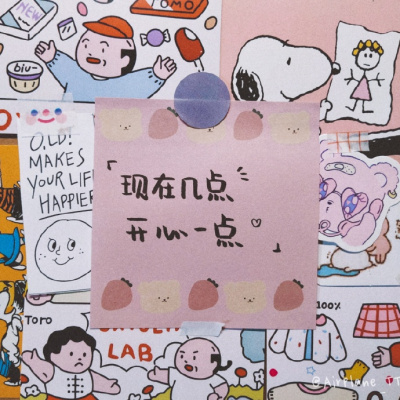 NEW
TOMO
biu~
O,LD!
MAKES
YOUR LIFE
HAPPIER
「现在几点
开心一点♡」
Toro
LAB
100%